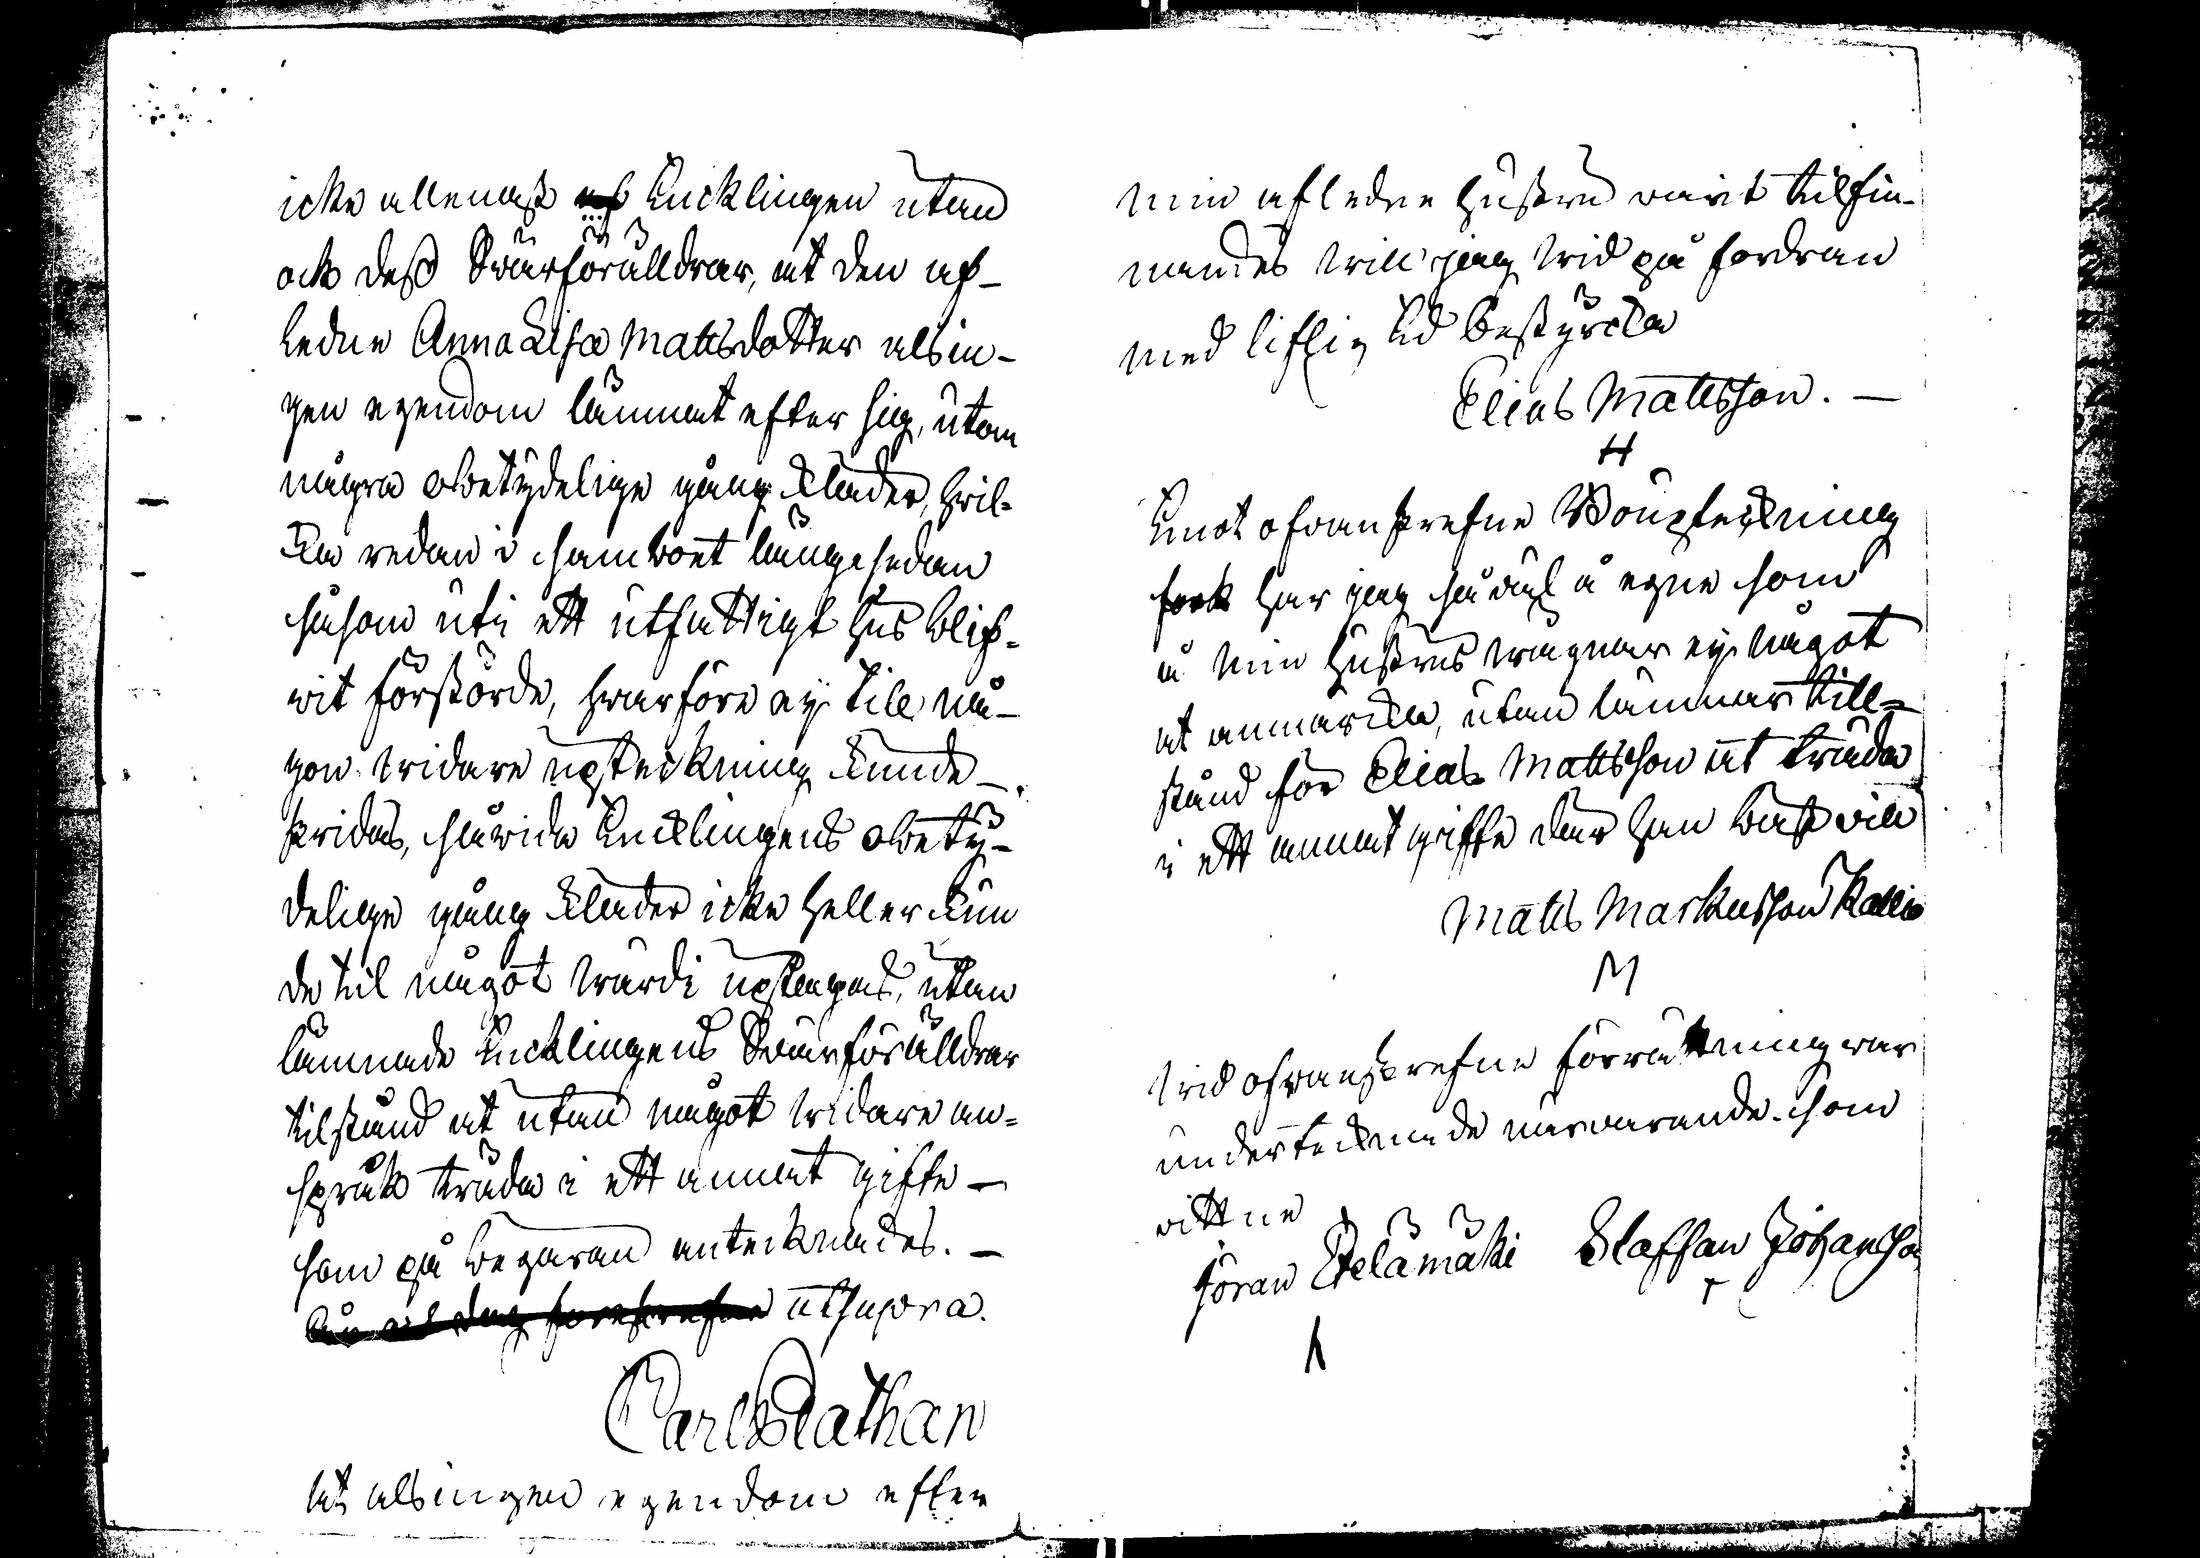 icke allenast Encklingen utan
ock dess Swärföräldrar, at den af-
ledne Anna Lisa Mattsdotter alsin-
gen egendom lämnat efter sig, utom
några obetydelige gång kläder, hvil-
ka redan i samboet längesedan
såsom uti ett utfattigt hus blif-
vit förstörde, hvarföre ej till nå-
gon vidare upteckning kunde
skridas, såvida Encklingens obety-
delige gång kläder icke heller kun
de til något värde uptagas, utan
lämnade Encklingens Swärföräldrar
tilstånd at utan något vidare an-
språk träda i ett annat gifte —
som på begäran antecknades. —
utsupra.
Carl Nathan
At alsingen egendom efter
min afledne hustru varit tilfin-
nandes vill jag vid påfordran
med liflig Ed bestyrcka
Elias Mattsson. —
H
Emot ofvanskrefne Bouptekning
har jag såväl å egne som
å min hustrus vägnar ej något
at anmärcka, utan lämnar till-
stånd för Elias Mattsson at träda
i ett annat gifte där han bäst vill
Matts Markusson Kallio
M
Vid ofvanskrefne förrättning var
undertecknade närvarande som
vittne
Jöran Etelämäki Staffan Johansson